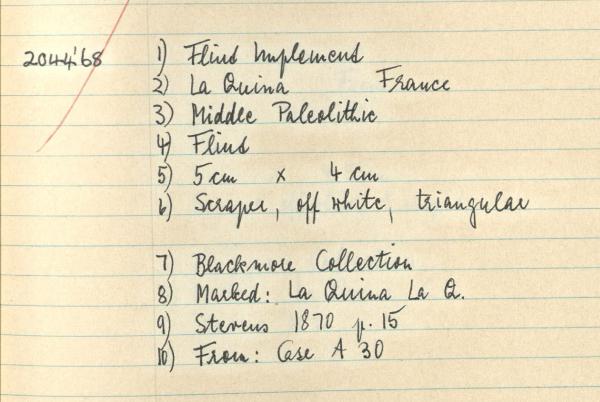 2044'68 1) Flint Implement
2) La Quina France
3) Middle Paleolithic
4) Flint
5) 5 cm x 4 cm
6) Scraper, off white, triangular
7) Blackmore Collection
8) Marked: La Quina La Q.
9) Stevens 1870 p. 15
10) From: Case A 30